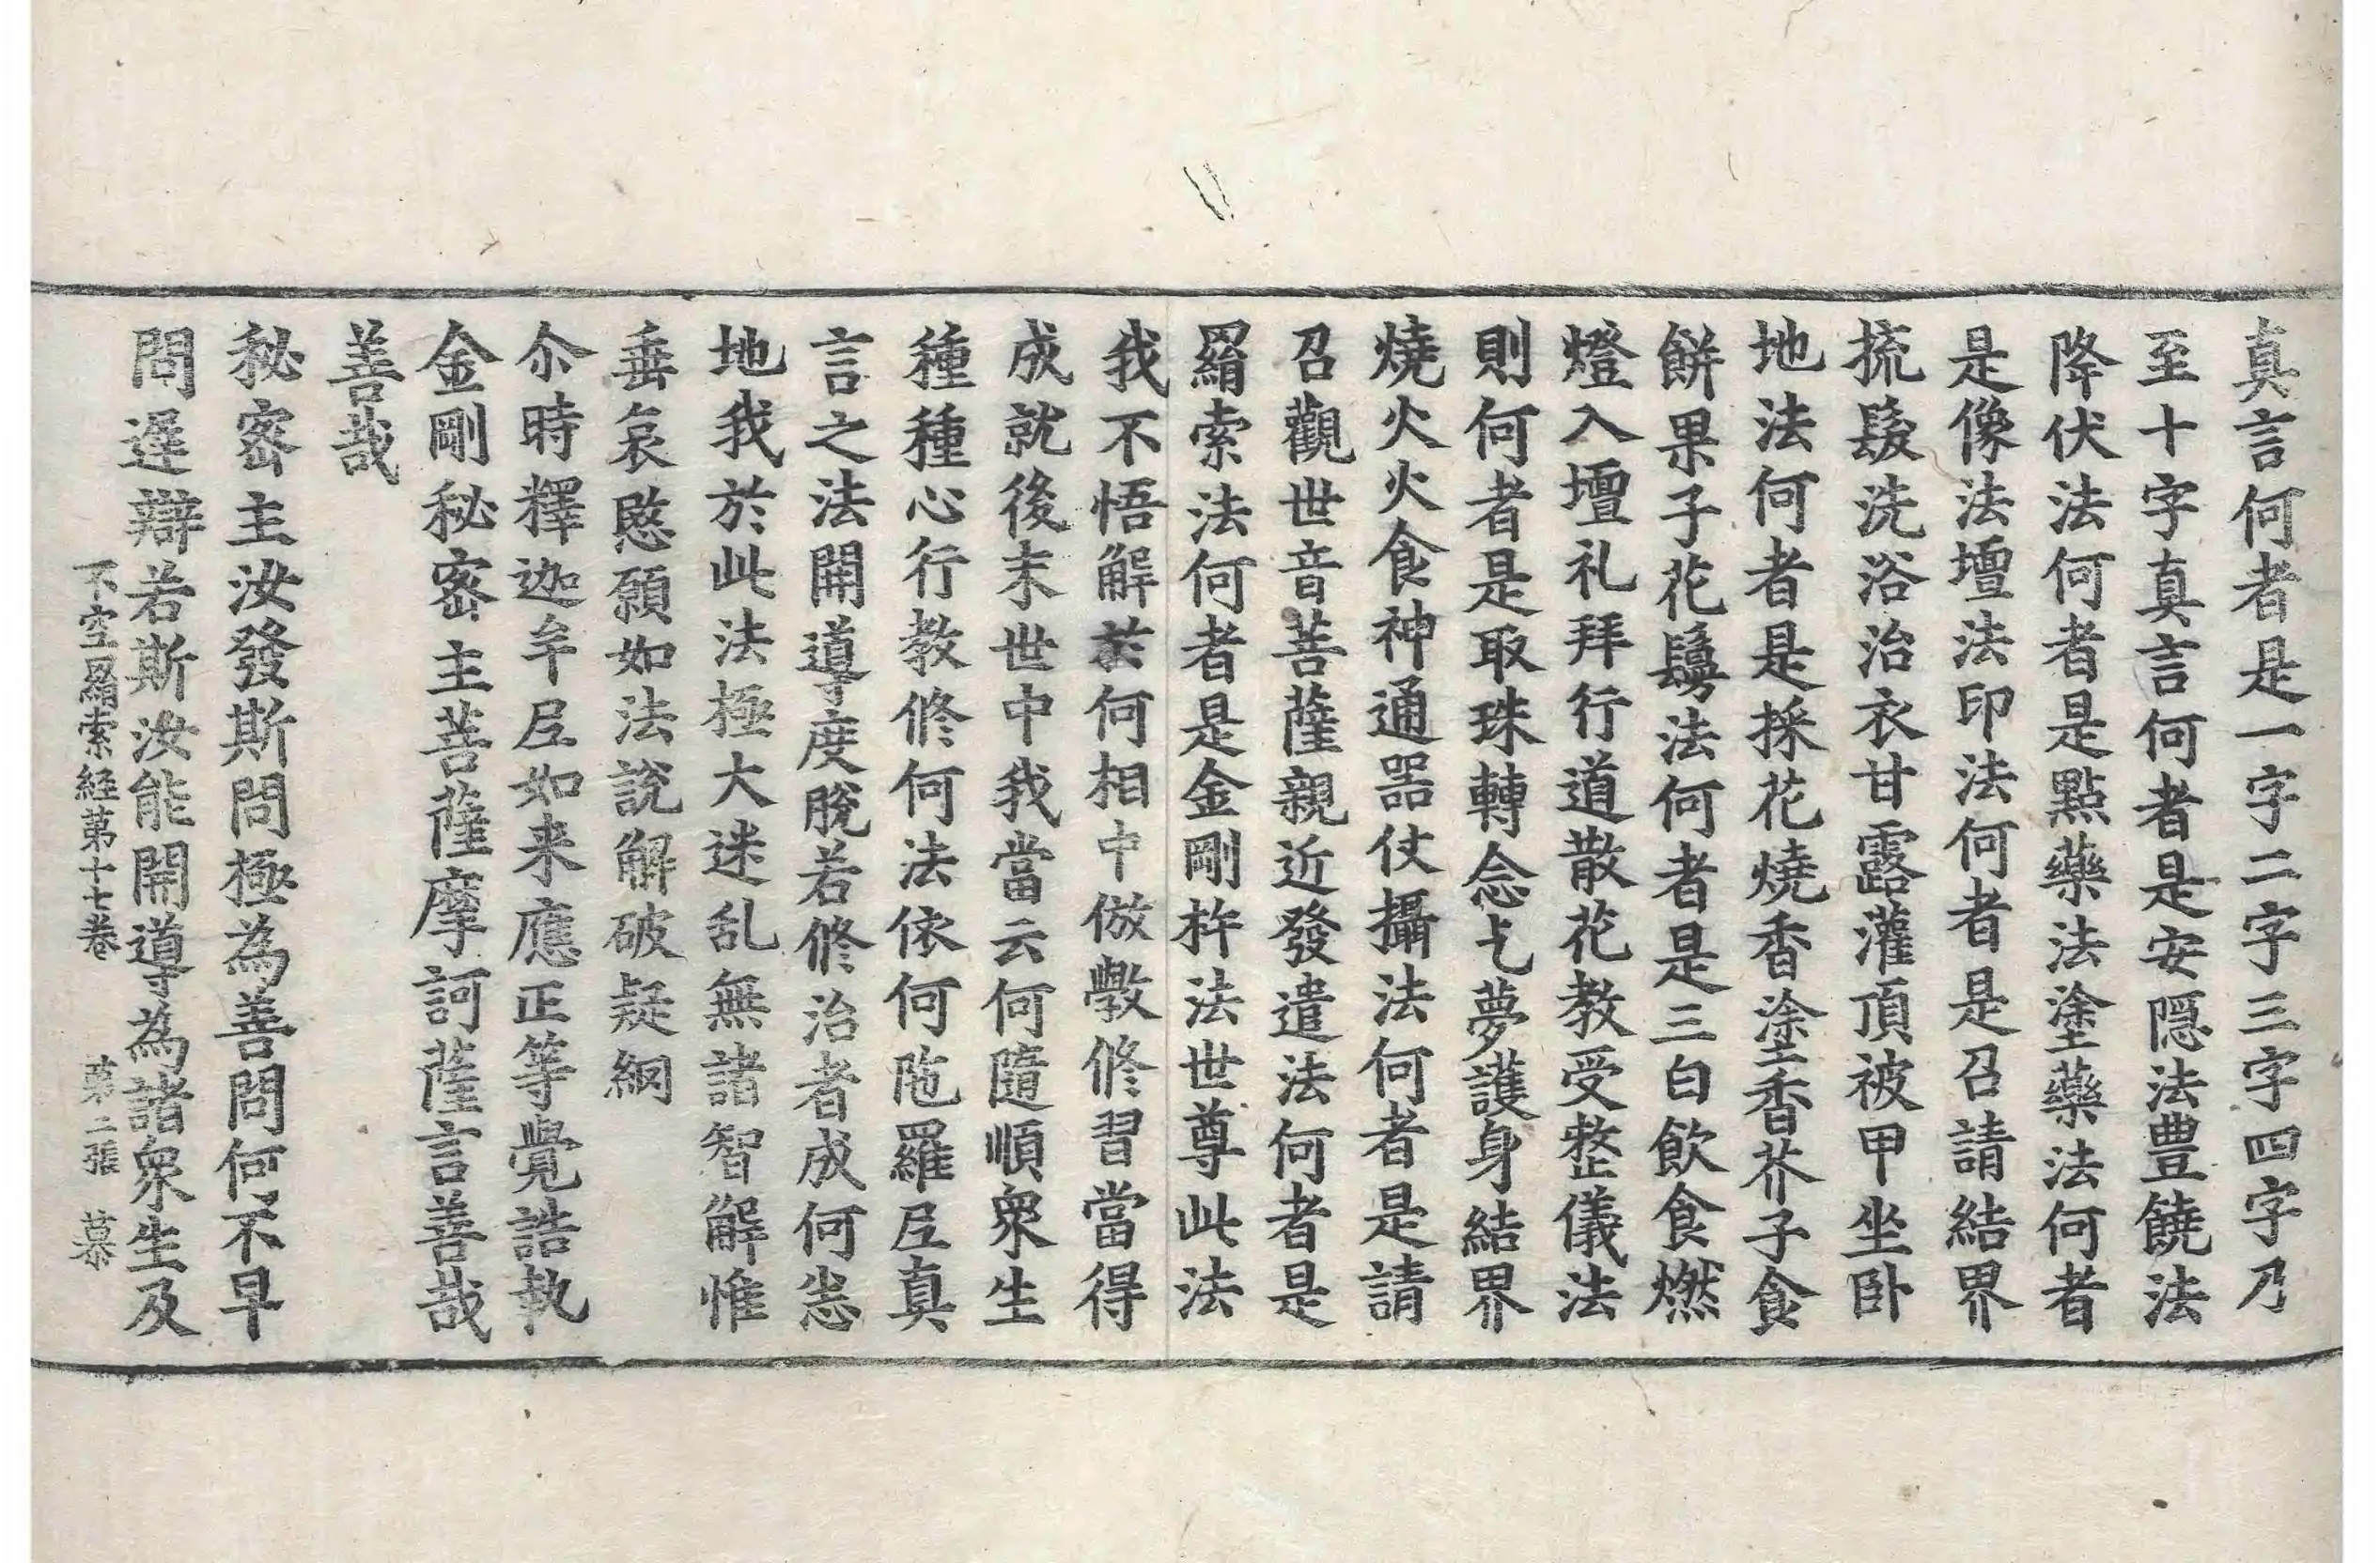 真言何者是一字二字三字四字乃
至十字真言何者是安隠法豊饒法
降伏法何者是點藥法塗藥法何者
是像法壇法印法何者是召請結界
梳髮洗浴治衣甘露灌頂被甲坐卧
地法何者是採花燒香塗香芥子食
餅果子花鬘法何者是三白飲食燃
燈入壇礼拜行道散花教受整儀法
則何者是取珠轉念乞夢護身結界
燒火火食神通器仗攝法何者是請
召觀世音菩薩親近發遣法何者是
羂索法何者是金剛杵法世尊此法
我不悟解於何相中倣斆修習當得
成就後末世中我當云何隨順衆生
種種心行教修何法依何陁羅𡰱真
言之法開導度脫若修治者成何恙
地我於此法極大迷乱無諸智解惟
垂哀愍願如法說解破疑網
尒時釋迦牟𡰱如来應正等覺誥執
金剛秘密主菩薩摩訶薩言善哉
善哉
秘密主汝發斯問極為善問何不早
問遅辯若斯汝能開導為諸衆生及
不空羂索経第十七卷 第二張 慕